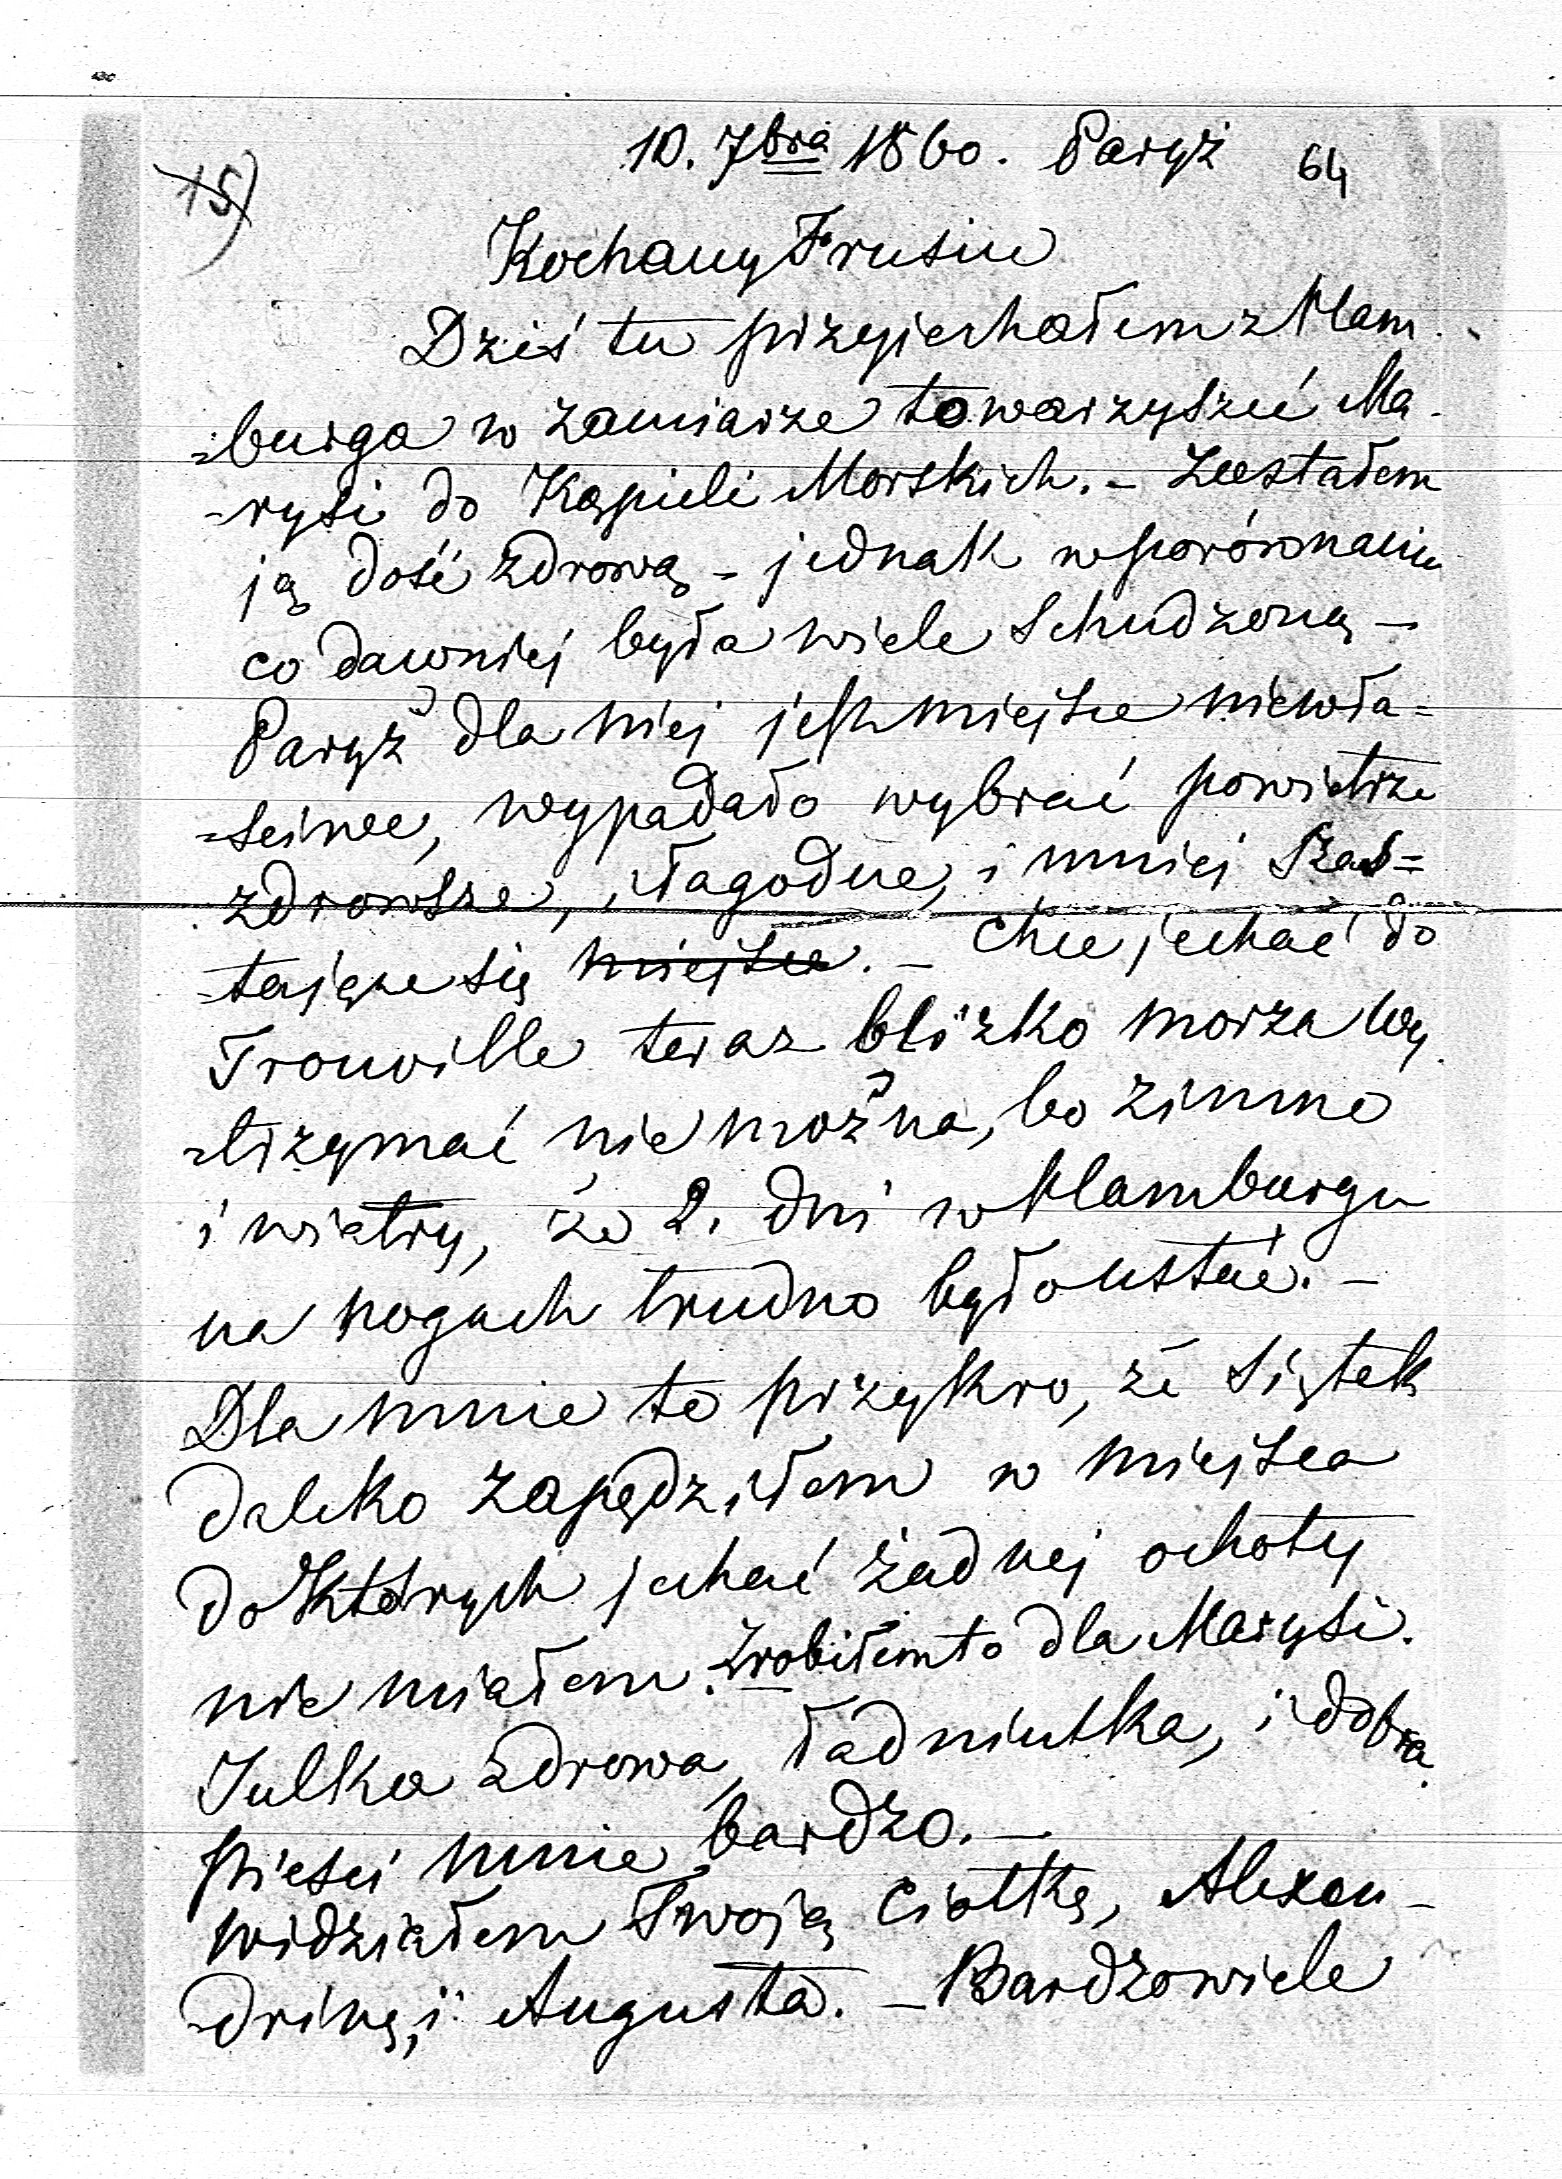 10. 7bra 1860. Paryż 64
15)
Kochany Frusiu
Dziś tu przyjechałem z Ham
=burga w zamiarze towarzyszeć Ma
=rysi do Kąpieli Morskich. – Zastałem
ją dość zdrową – jednak w porównaniu
co dawniej była wiele schudzoną –
Paryż dla niej jest miejsce niewła=
=sciwe, wypadało wybrać powietrze
zdrowsze, łagodne, i mniej
=tające się miejsce. – Chce jechać do
Trouville teraz blizko morza wy
=trzymać nie można, bo zimno
i wiatry, że 2. dni w Hamburgu
na nogach trudno było ustać. –
Dla mnie to przykro, że się tak
daleko zapędziłem w miejsca
do których jechać żadnej ochoty
nie miałem. Zrobiłem to dla Marysi.
Julka zdrowa, ładniutka, i dobra
piesci mnie bardzo. –
Widziałem Twoją Ciotkę, Alexan–
=drinę, i Augusta. – Bardzo wiele